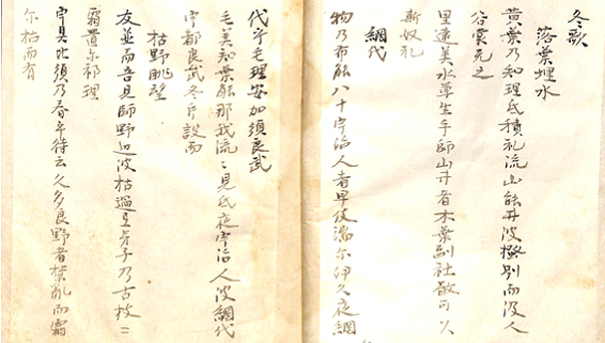 冬歌
落葉埋水
黄葉乃知理氐積礼流山能井波撥別而汲人
谷裳无之
里遠美水草生手師山井者木葉副社散可久
斯奴礼
網代
物乃布能八十宇治人者早伎瀬尓伊久夜網
代乎毛理安加須良武
毛美知葉能那我流々見氐夜宇治人波網代
宇都良武冬片設而
枯野眺望
友並而吾見師野辺波枯過且牙子乃古枝二
霜置尓祁理
宇具比須乃春乎待云久多良野者探乱而霜
尓枯而有